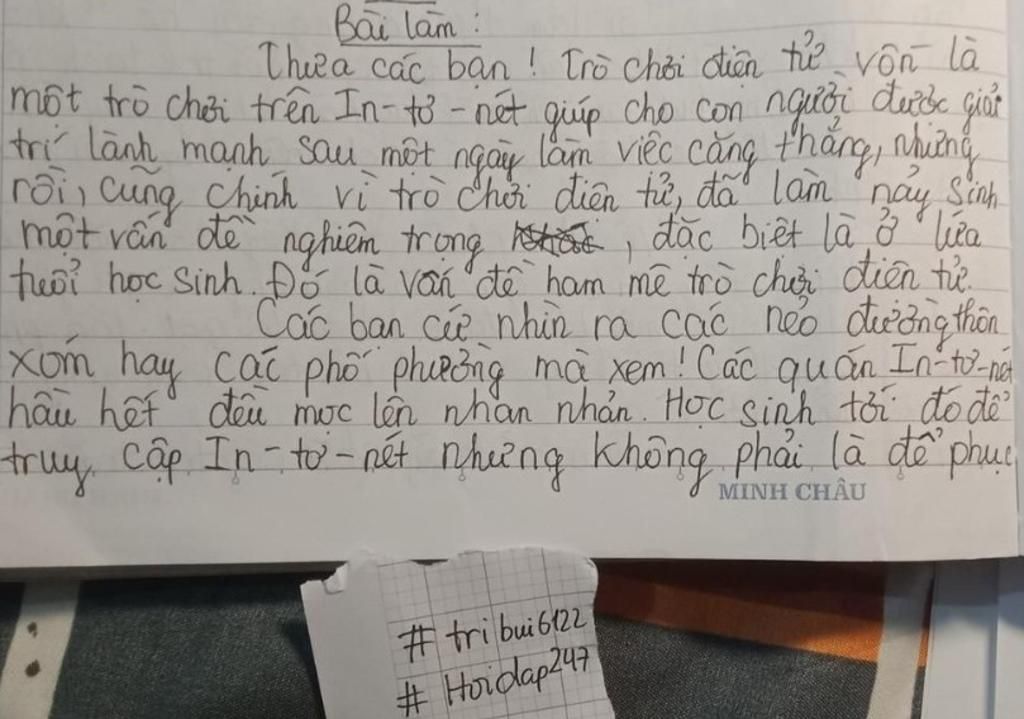 Bài làm :
Thưa các bạn ! Trò chơi điện tử vốn là
một trò chơi trên In-tơ-nét giúp cho con người được giải
trí lành mạnh sau một ngày làm việc căng thẳng, nhưng
rồi, cũng chính vì trò chơi điện tử, đã làm nảy sinh
một vấn đề nghiêm trọng , đặc biệt là ở lứa
tuổi học sinh. Đó là vấn đề ham mê trò chơi điện tử.
Các bạn cứ nhìn ra các nẻo đường thôn
xóm hay các phố phường mà xem! Các quán In-tơ-nét
hầu hết đều mọc lên nhan nhản. Học sinh tới đó để
truy cập In-tơ-nét nhưng không phải là để phục
MINH CHÂU
# tribui6122
# Hoidap247